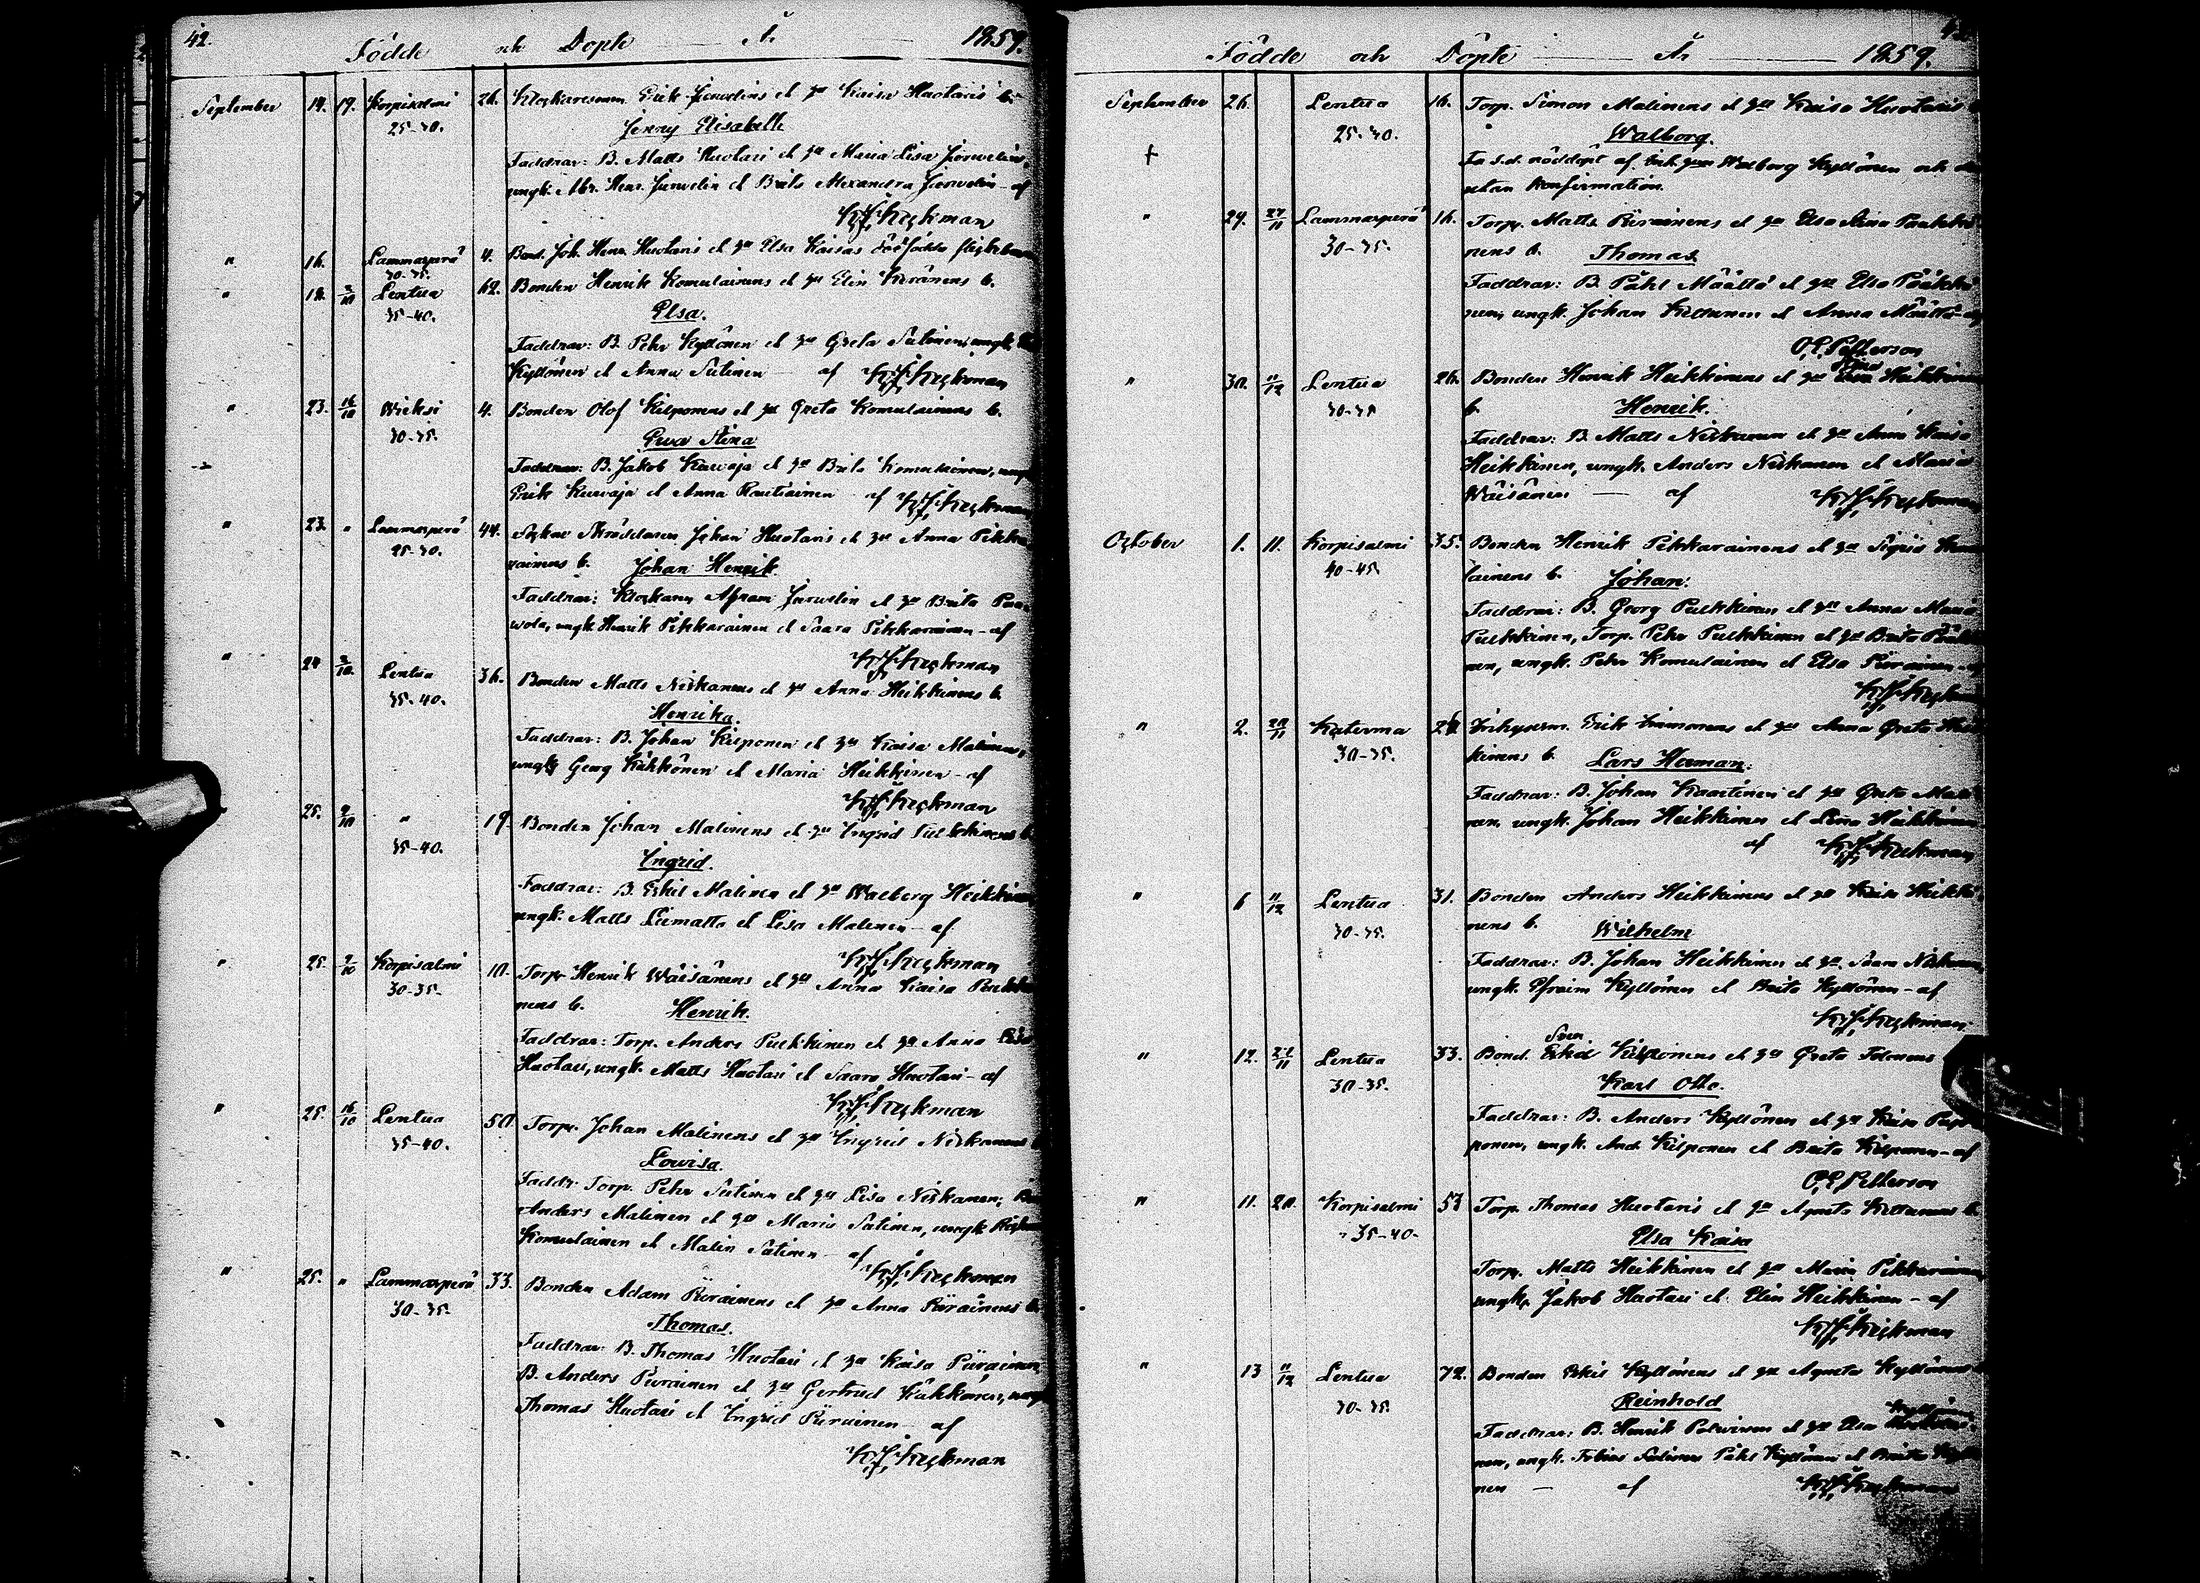 42.
Födde och Döpte År 1859.
September 14. 19. Korpisalmi 26. Klockaresonen Erik Jurvelins et hu Kaisa Huotaris b.
25-30. Jenny Elisabeth
Faddrar: B. Matts Huotari et hu Maria Lisa Jurvelin,
ungk. Abr. Henr. Jurvelin et Brita Alexandra Jurvelin - af
Keckman
" 16. Lammasperä 4. Bond. Joh. Henr. Huotaris et hu Elsa Kaisas dödfödda flickebarn
30-35.
" 18. 2/10 Lentua 62. Bonden Henrik Komulainens et hu Elin Keränens b.
35-40. Elsa.
Faddrar: B. Pehr Kyllönen et hu Greta Sutinen, ungk.
Kyllönen et Anna Sutinen af Keckman
" 23. 16/10 Wieksi 4. Bonden Olof Kilponens et hu Greta Komulainens b.
30-35. Ewa Stina
Faddrar: B. Jakob Kuwaja et hu Brita Komulainen, ungk.
Erik Kuwaja et Anna Rautiainen af Keckman
" 23. " Lammasperä 44. Sockne Skräddaren Johan Huotaris et hu Anna Pikka-
25-30. rainens b. Johan Henrik.
Faddrar: Klockaren Abram Jurvelin et hu Brita
wola, ungk. Henrik Pikkarainen et Saara Pikkarainen - af
Keckman
" 24 2/10. Lentua 36. Bonden Matts Niskanens et hu Anna Heikkinens b.
35-40. Henrika.
Faddrar: B. Johan Kilponen et hu Kaisa Malinen,
ungk. Georg Kähkönen et Maria Heikkinen - af
Keckman
" 25. 2/10 " 19. Bonden Johan Malinens et hu Ingrid Pulkkinens b.
35-40. Ingrid.
Faddrar: B. Eskil Malinen et hu Walborg Heikkinen
ungk. Matts Liimatta et Lisa Malinen - af
Keckman
" 25. 9/10 Korpisalmi 10. Torp. Henrik Wäisänens et hu Anna Kaisa Pulkki-
30-35. nens b. Henrik.
Faddrar: Torp. Anders Pulkkinen et hu Anna Lisa
Huotari, ungk. Matts Huotari et Saara Huotari - af
Keckman
" 25. 16/10 Lentua 50 Torp. Johan Malinens et hu Ingrid Niskanens b.
35-40. Lowisa.
Faddr. Torp. Pehr Sutinen et hu Lisa Niskanen;
Anders Malinen et hu Maria Sutinen, ungk.
Komulainen et Malin Sutinen - af
Keckman
" 25. " Lammasperä 33. Bonden Adam Piirainens et hu Anna Piirainens b.
30-35. Thomas.
Faddrar: B. Thomas Huotari et hu Kaisa Piirainen,
B. Anders Piirainen et hu Gertrud Kähkönen, ungk.
Thomas Huotari et Ingrid Piirainen - af
Keckman
Födde och Döpte År 1859.
September 26. Lentua 16. Torp. Simon Malinens et hu Kaisa Huotaris b.
25-30. Walborg.
† Fa s.d. nöddopt af Walborg Kyllönen och
utan konfirmation.
" 29. 27/11 Lammasperä 16. Torp. Matts Piirainens et hu Elsa Stina Pääkkö-
30-35. nens b. Thomas
Faddrar: B. Påhl Määttä et hu Elsa Pääkkö-
nen, ungk. Johan Keltunen et Anna Määttä - af
O.E. Petterson
" 30. 11/12 Lentua 26. Bonden Henrik Heikkinens et hu Stina Heikkinens
30-35 b. Henrik.
Faddrar: B. Matts Niskanen et hu Anna Kaisa
Heikkinen, ungk. Anders Niskanen et Maria
Wäisänen - af Keckman
October 1. 11. Korpisalmi 35. Bonden Henrik Pikkarainens et hu Sigris
40-45. lainens b. Johan.
Faddrar: B. Georg Pulkkinen et hu Anna Maria
Pulkkinen, Torp. Pehr Pulkkinen et hu Brita
nen, ungk. Pehr Komulainen et Elsa Piirainen - af
Keckman
" 2. 20/11 Katerma 26 Erik Immonens et hu Anna Greta Heik-
30-35. kinens b. Lars Herman.
Faddrar: B. Johan Kaartinen et hu Greta
nen, ungk. Johan Heikkinen et Lena Heikkinen
af Keckman
" 6 11/12 Lentua 31. Bonden Anders Heikkinens et hu Kaisa Heikki-
30-35. nens b. Wilhelm
Faddrar: B. Johan Heikkinen et hu Saara Niskanen,
ungk. Efraim Kyllönen et Brita Kyllönen - af
Keckman
" 12. 27/11 Lentua 33. Bond. Sven Kilponens et hu Greta Tolonens
30-35. Karl Otto.
Faddrar: B. Anders Kyllönen et hu Kaisa
ponen, ungk. And. Kilponen et Brita Kilponen - af
O.E. Petterson
" 11. 20. Korpisalmi 53 Torp. Thomas Huotaris et hu Agneta Keltunens b.
35-40. Elsa Kaisa
Torp. Matts Heikkinen et hu Maria Pikkarainen,
ungk. Jakob Huotari et Elin Heikkinen - af
Keckman
" 13 11/12 Lentua 72. Bonden Eskil Kyllönens et hu Agneta Kyllönens
30-35. Reinhold
Faddrar: B. Henrik Polwinen et hu Elsa
nen, ungk. Tobias Sutinen Påhl Kyllönen et Brita Kyllö-
nen - af Keckman